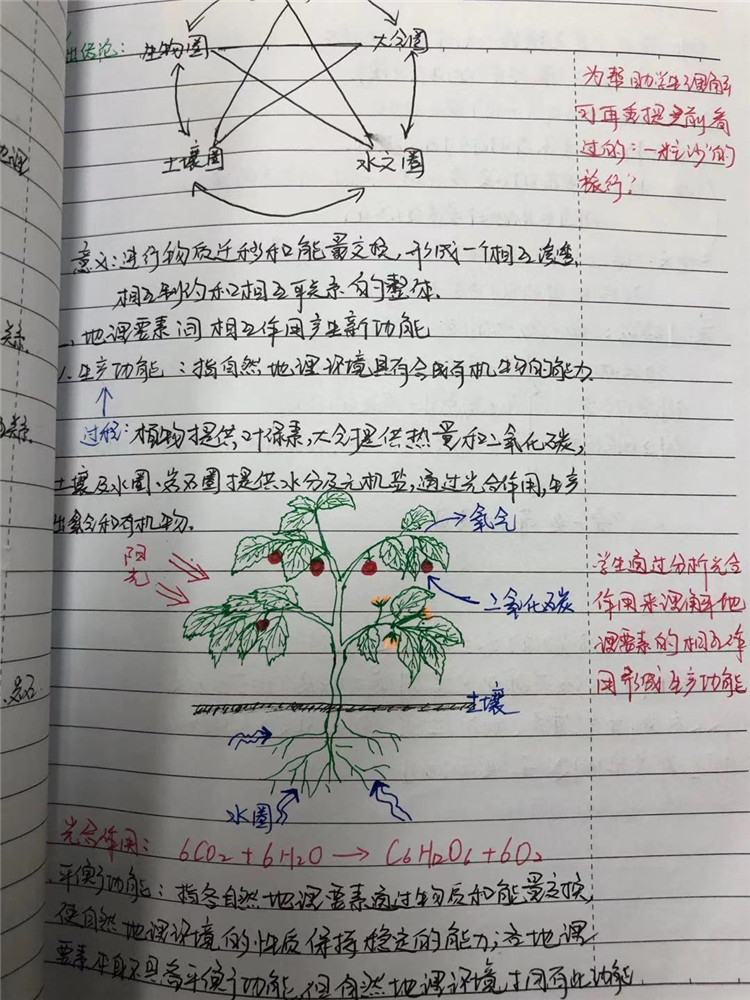 生物圈 大气圈
土壤圈 水文圈
为帮助学生理解
可再重提更前看
过的:"一粒沙"的
旅行;
意义:进行物质迁移和能量交换,形成一个相互渗透,
相互制约和相互联系的整体.
一、地理要素间相互作用产生新功能
1.生产功能:指自然地理环境具有合成有机生物的能力.
过程:植物提供叶绿素,大气提供热量和二氧化碳,
土壤及水圈、岩石圈提供水分及无机盐,通过光合作用,生产
出氧气和有机物.
氧气
阳光
二氧化碳
学生通过分析光合
作用来理解地
理要素的相互作
用形成生产功能
土壤
水圈
光合作用:6CO2+6H2O→C6H12O6+6O2
平衡功能:指各自然地理要素通过物质和能量交换,
使自然地理环境的性质保持稳定的能力;各地理
要素本身不具备平衡功能,但自然地理环境才因有此功能
关系.
关系.
岩石.